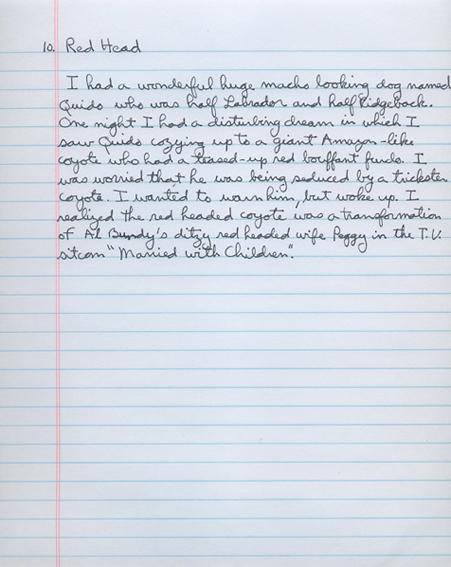 10. Red Head
I had a wonderful huge macho looking dog named
Quido who was half Labrador and half Ridgeback.
One night I had a disturbing dream in which I
saw Quido cozying up to a giant Amazon-like
coyote who had a teased-up red bouffant furdo. I
was worried that he was being seduced by a trickster
coyote. I wanted to warn him, but woke up. I
realized the red headed coyote was a transformation
of Al Bundy's ditzy red headed wife Peggy in the T.V.
sitcom "Married with Children".